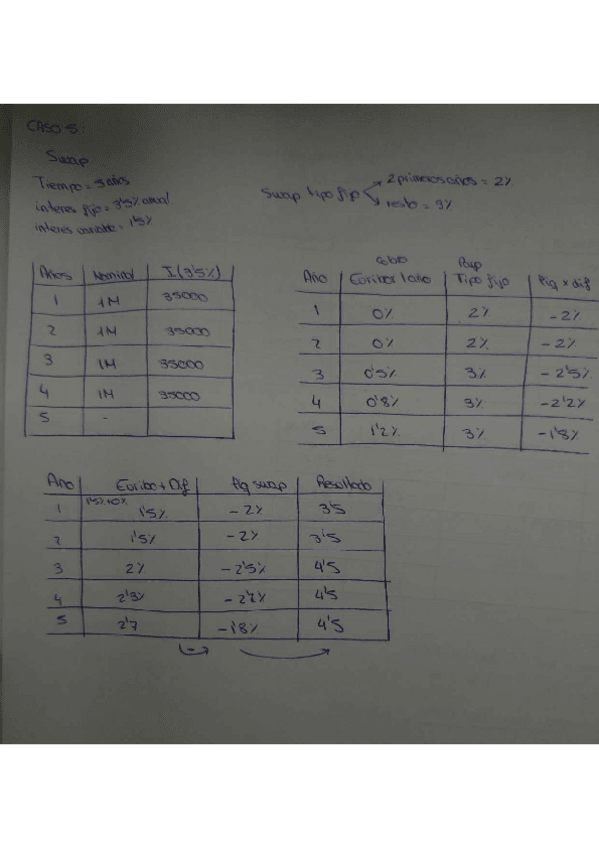 CASO 5:
Swap
Tiempo = 5 años
interes fijo = 3'5% anual
interes variable = 1'5%
Swap tipo fijo
2 primeros años = 2%
resto = 3%
Años Nominal I (3'5%)
1 1M 35000
2 1M 35000
3 1M 35000
4 1M 35000
5 -
Cobro Pago
Año Euribor 1 año Tipo fijo Liq x dif
1 0% 2% -2%
2 0% 2% -2%
3 0'5% 3% -2'5%
4 0'8% 3% -2'2%
5 1'2% 3% -1'8%
Año Euribo + Dif liq swap Resultado
1 1'5%+0% 1'5% -2% 3'5
2 1'5% -2% 3'5
3 2% -2'5% 4'5
4 2'3% -2'2% 4'5
5 2'7 -1'8% 4'5